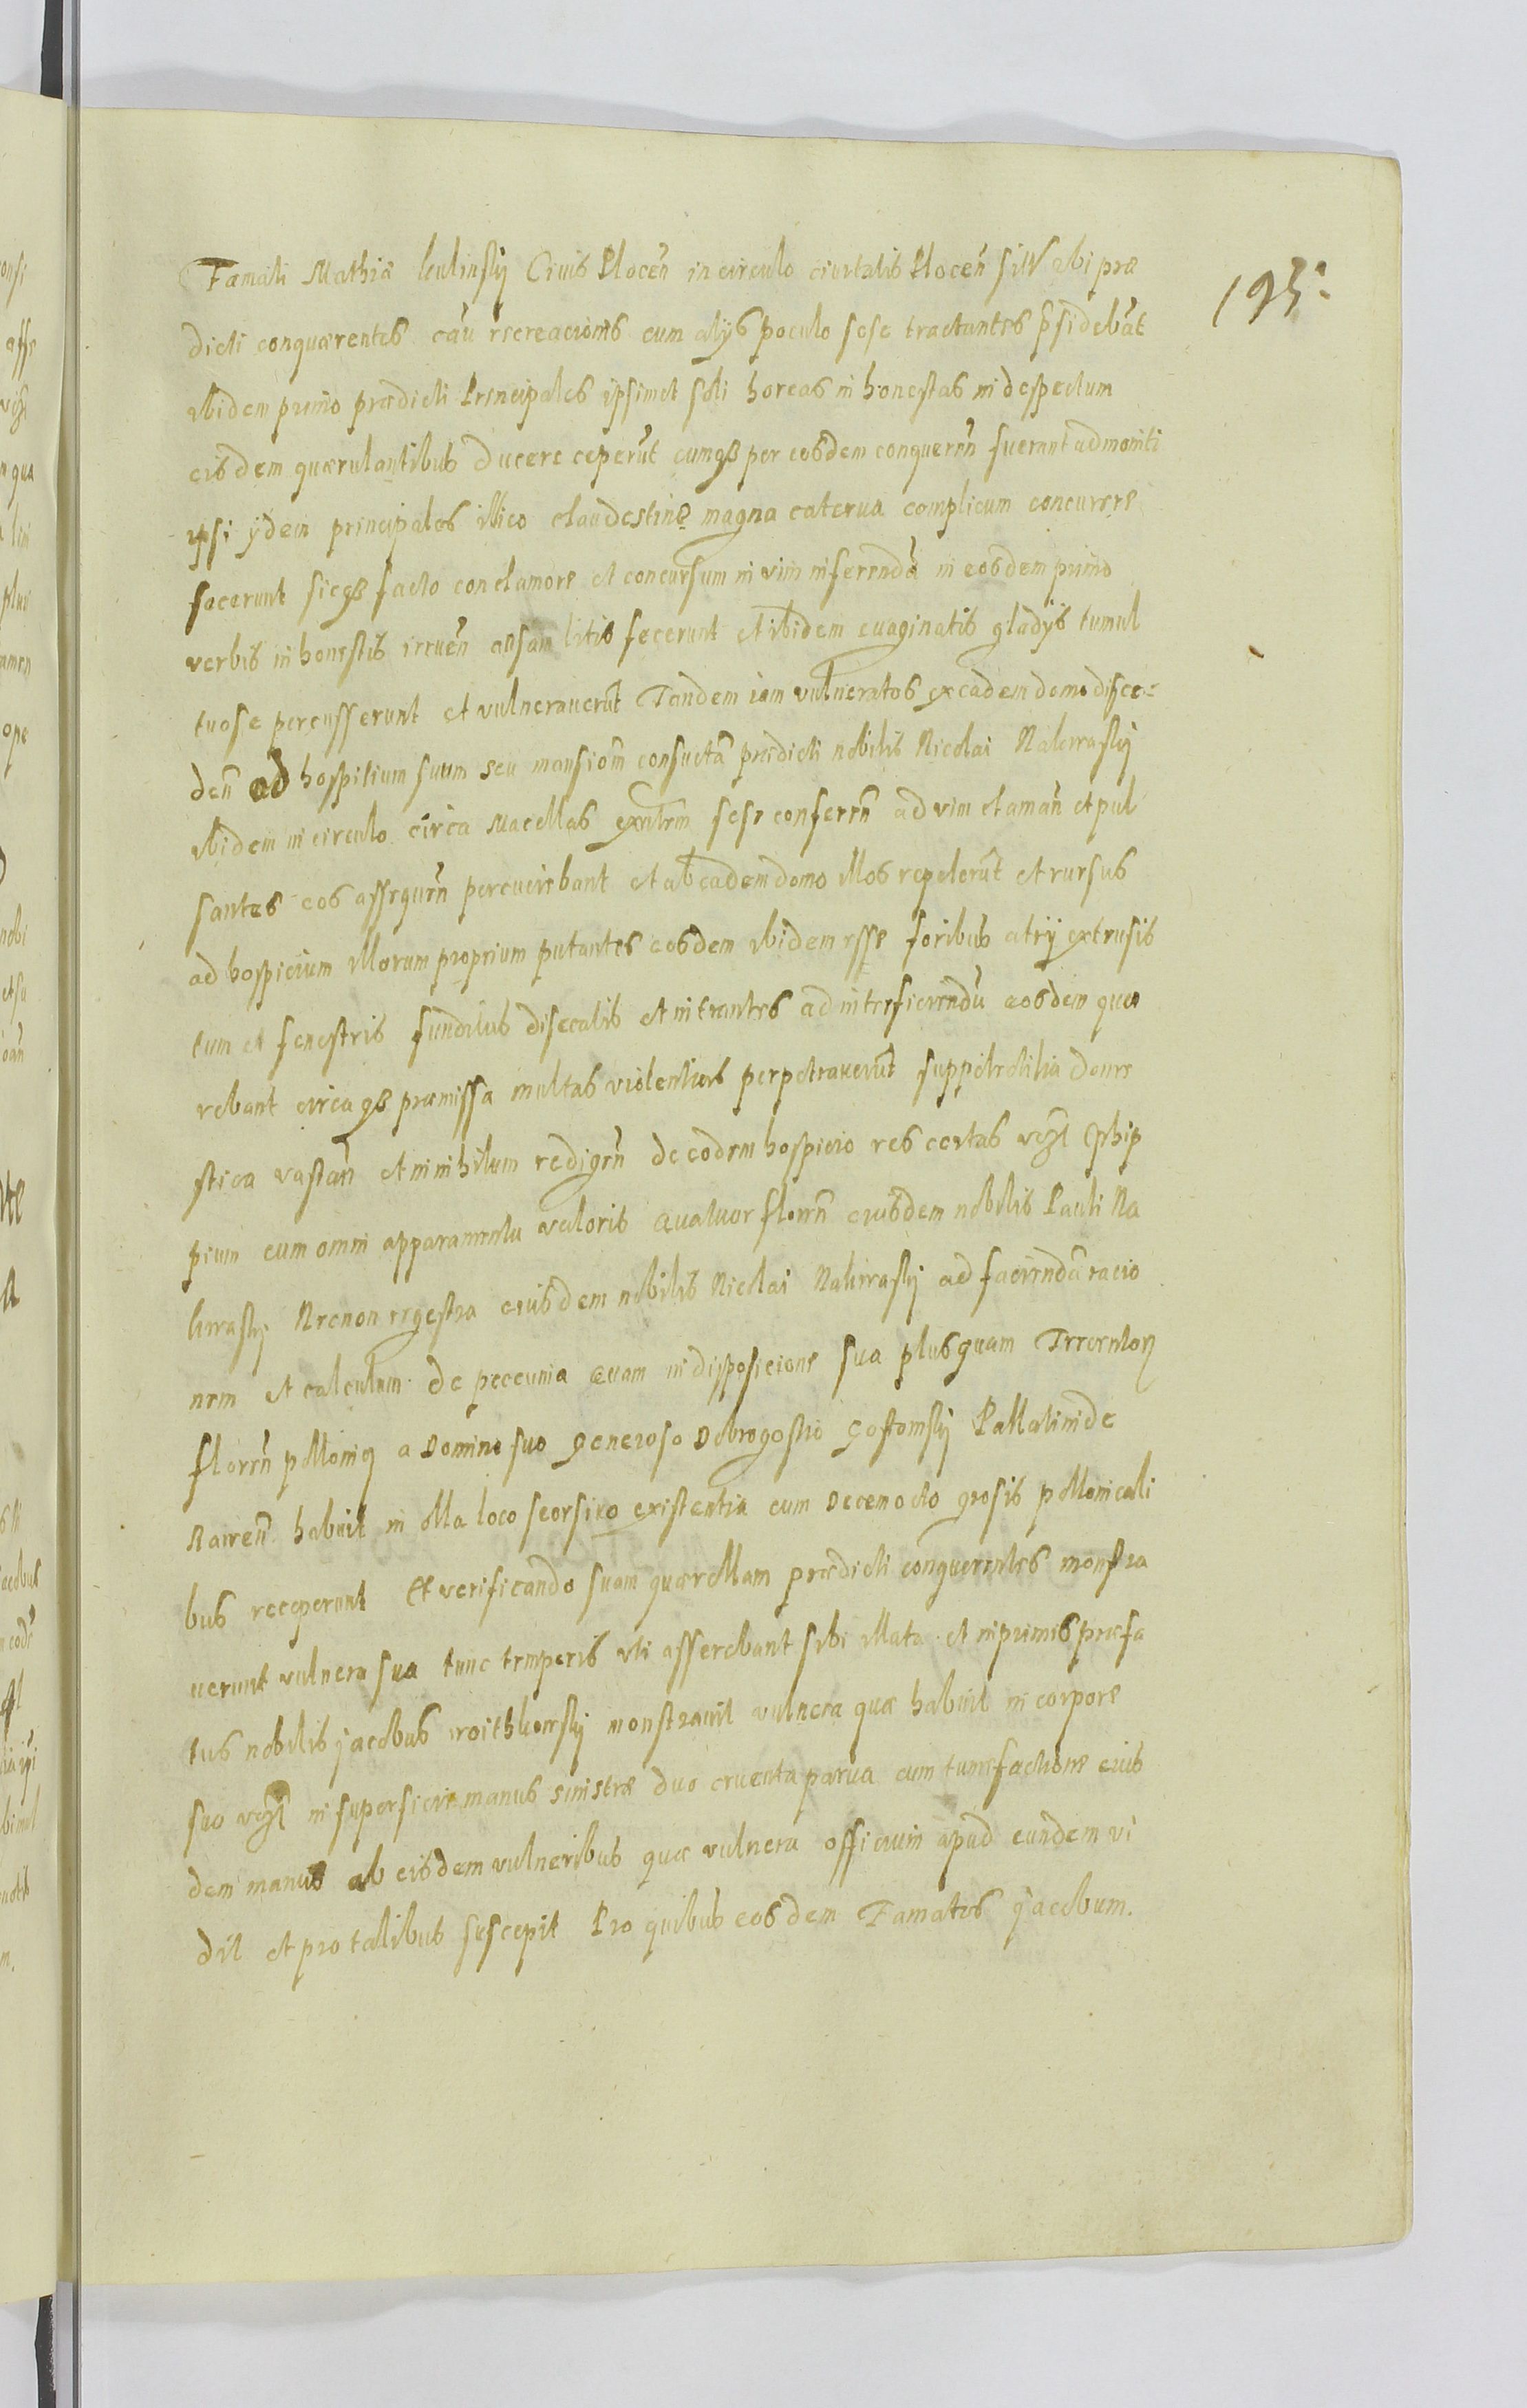 193.
Famati Mathiæ kulinskÿ Ciuis Plocen̄ in circulo ciuitatis Plocen̄ siti vbi præ
dicti conquærentes cau recreacionis cum alÿs poculo sese tractantes p̄sidebāt
ibidem primo prædicti Principales ipsimet soli horeas inhonestas in despectum
eisdem quærulantibus ducere ceperūt cumqȝ per eosdem conqueren̄ fuerunt admoniti
ipsi ÿdem principales illico clandestine magna caterua complicum concurrere
fecerunt sicqȝ facto conclamore et concursum in vim inferendā in eosdem primo
verbis inhonestis irruen̄ ansam litis fecerunt et ibidem euaginatis gladÿs tumul
tuose percusserunt et vulnerauerūt Tandem iam vulneratos ex eadem domo disce=
den̄ ad hospitium suum seu mansionē consuetā prædicti nobilis Nicolai NaleuaskÿJ
ibidem in circulo circa Macellas exntem̄ sese conferen̄ ad vim claman̄ et pul
santes eos assequen̄ percuciebant et ab eadem domo illos repelerūt et rursus
ad hospicium illorum proprium putantes eosdem ibidem esse foribus atrÿ extrusis
tum et fenestris funditus disecatis et intrantes ad interficiendū eosdem quæ
rebant circaqȝ præmissa multas violentias perpetrauerūt suppelectilia dome
stica vastan̄ et in nihilum redigen̄ de eodem hospicio res certas vczl Ephip
pium cum omni apparamentu valoris Quatuor floren̄ eiusdem nobilis Pauli Na
leuaskÿ Necnon regestra eiusdem nobilis Nicolai Naleuaskÿ ad faciendā racio
nem et calculum de peccunia quam in disposicione sua plus quam Trecentor
floren̄ pollonicor a Domino suo Generoso Dobrogostio Gostomskÿ Pallatinide
Rauen̄ habuit in olla loco seorsiuo existentia cum Decem octo grosis pollonicali
bus receperunt Et verificando suam quærellam prædicti conquerentes monstra
uerunt vulnera sua tunc temporis vti asserebant sibi illata et inprimis præfa
tus nobilis Jacobus woithkowskÿ monstrauit vulnera quæ habuit in corpore
suo vczl in superficie manus sinistræ duo cruenta parua cum tumefactione eius
dem manus ab eisdem vulneribus quæ vulnera officium apud eundem vi
dit et pro talibus suscepit Pro quibus eosdem Famatos Jacobum.